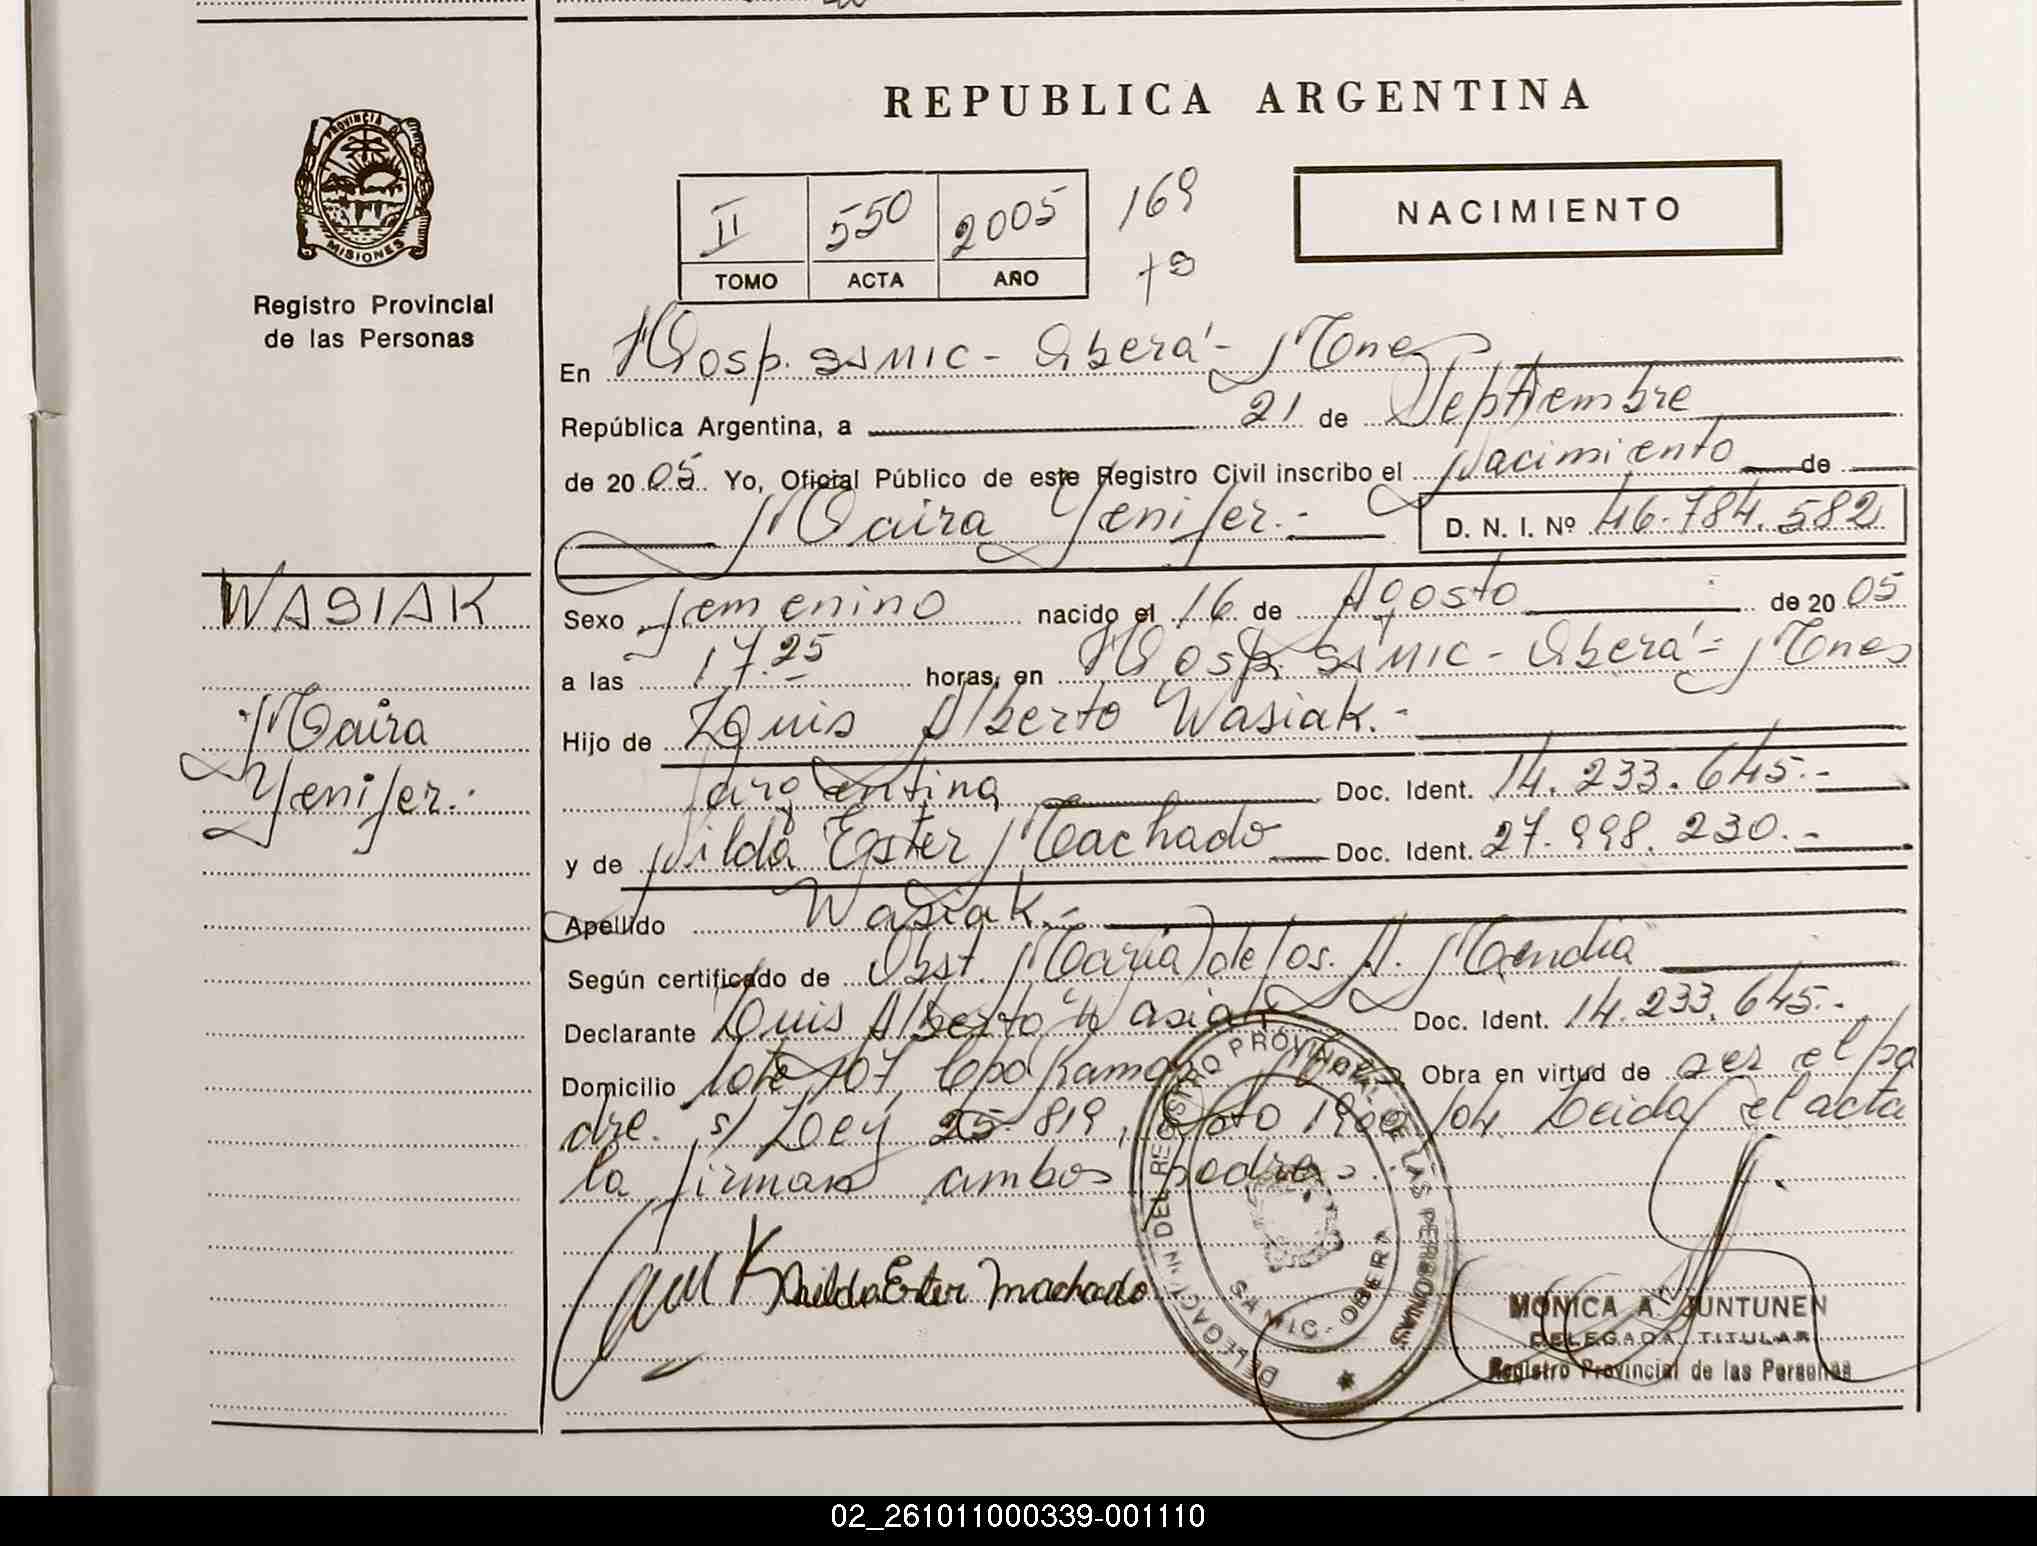 REPUBLICA ARGENTINA
PROVINCIA D
MISIONES
Registro Provincial
de las Personas
II 550 2005 169
TOMO ACTA AÑO
NACIMIENTO
En Hosp. SAMIC - Oberá - Mnes
República Argentina, a 21 de Septiembre
de 2005. Yo, Oficial Público de este Registro Civil inscribo el Nacimiento de
Maira Yenifer.- D. N. I. Nº 46.784.582
WASIAK
Maira
Yenifer.-
Sexo femenino nacido el 16 de Agosto de 2005
a las 17.25 horas, en Hosp. SAMIC - Oberá - Mnes
Hijo de Luis Alberto Wasiak.-
argentina Doc. Ident. 14.233.645.-
y de Nilda Ester Machado Doc. Ident. 27.998.230.-
Apellido Wasiak.-
Según certificado de Obst. Maria de los A. Mendia
Declarante Luis Alberto Wasiak Doc. Ident. 14.233.645.-
Domicilio lote 107 Cpo Ramon Mnes Obra en virtud de ser el pa
dre. s/ Ley 25.819, Dto 1900/04 Leida el acta
la firman ambos padres.
Nilda Ester Machado
DELEGACION DEL REGISTRO PROVINCIAL DE LAS PERSONAS
SAMIC - OBERA
MONICA A. JUNTUNEN
DELEGADA TITULAR
Registro Provincial de las Personas
02_261011000339-001110